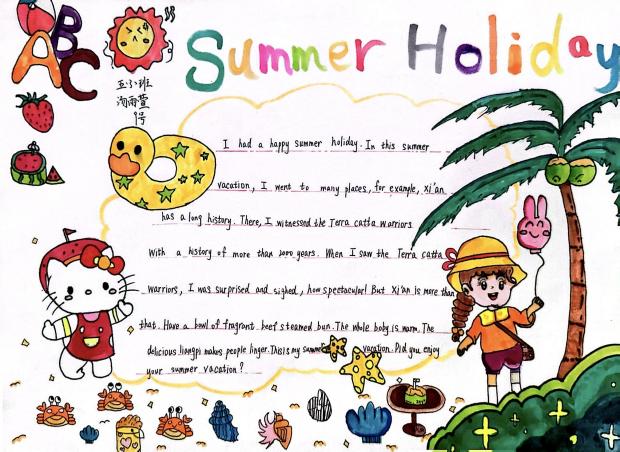 ABC
Summer Holiday
五(3)班
陶雨萱
1号
I had a happy summer holiday. In this summer
vacation, I went to many places, for example, Xi'an
has a long history. There, I witnessed the Terra catta warriors
With a history of more than 2000 years. When I saw the Terra catta
warriors, I was surprised and sighed, how spectacular! But Xi'an is more than
that. Have a bowl of fragrant beef steamed bun. The whole body is warm. The
delicious liangpi makes people linger. This is my summer vacation. Did you enjoy
your summer vacation?